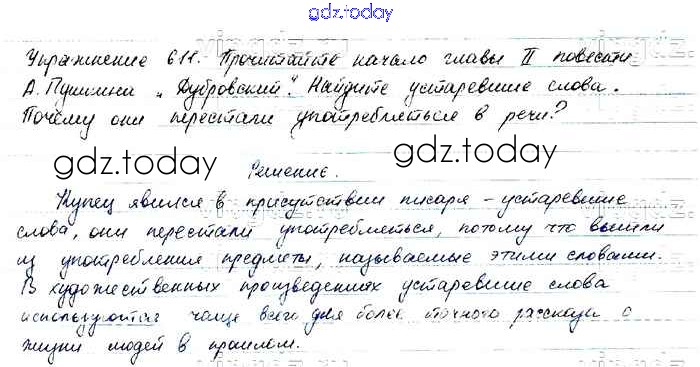 gdz.today
Упражнение 611. Прочитайте начало главы II повести
А. Пушкина „Дубровский". Найдите устаревшие слова.
Почему они перестали употребляться в речи?
gdz.today
gdz.today
Решение.
Купец явился в присутствии писаря – устаревшие
слова, они перестали употребляться, потому что вышли
из употребления предметы, называемые этими словами.
В художественных произведениях устаревшие слова
используются чаще всего для более точного рассказа о
жизни людей в прошлом.